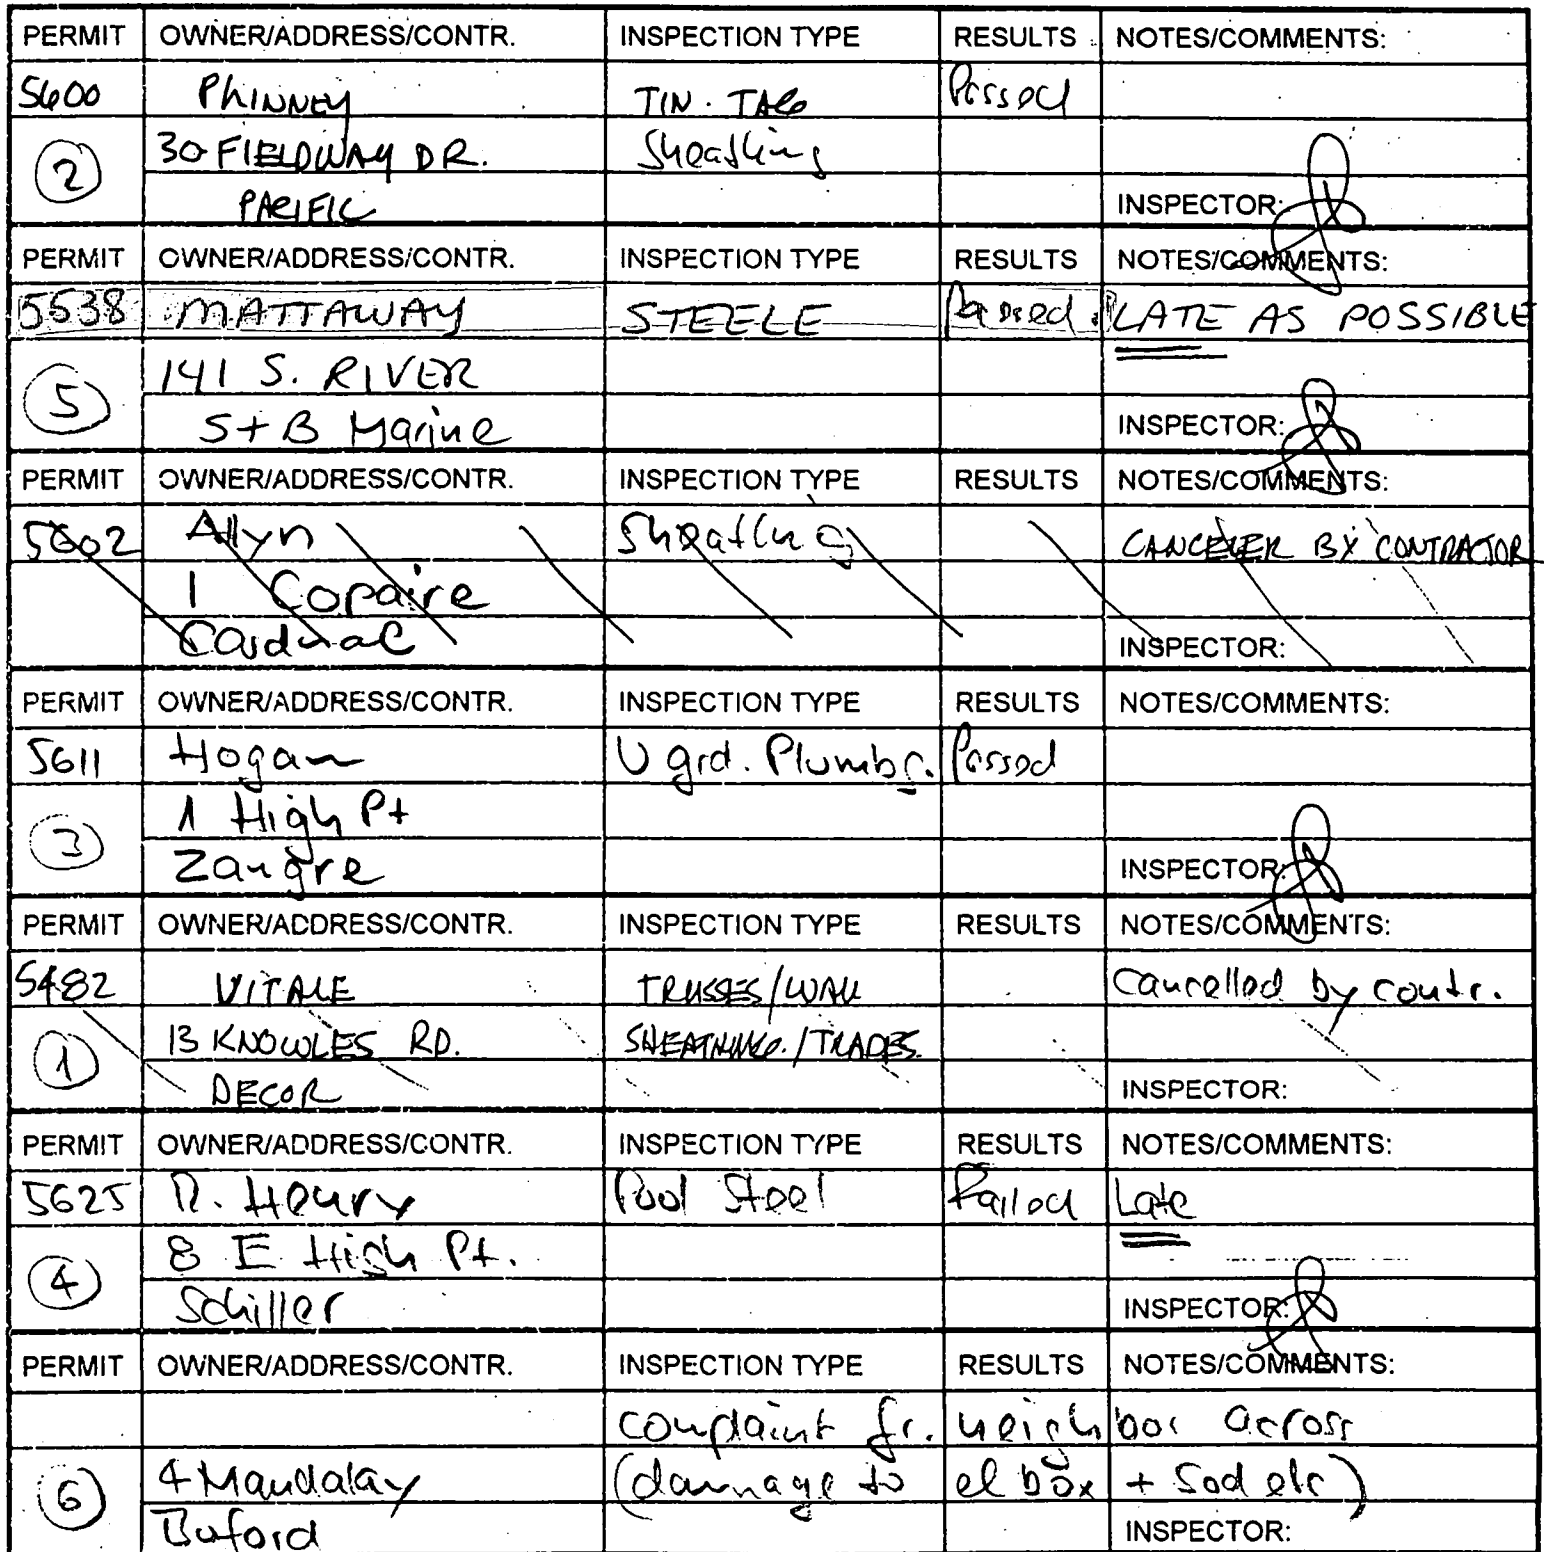 PERMIT OWNER/ADDRESS/CONTR. INSPECTION TYPE RESULTS NOTES/COMMENTS:
5600 PHINNEY TIN. TAG Passed
② 30 FIELDWAY DR. Sheathing
PACIFIC INSPECTOR:
PERMIT OWNER/ADDRESS/CONTR. INSPECTION TYPE RESULTS NOTES/COMMENTS:
5538 MATTAWAY STEELE Passed. LATE AS POSSIBLE
⑤ 141 S. RIVER
S+B Marine INSPECTOR:
PERMIT OWNER/ADDRESS/CONTR. INSPECTION TYPE RESULTS NOTES/COMMENTS:
5602 Allyn Sheathing CANCELER BY CONTRACTOR
1 Copaire
Cardinal INSPECTOR:
PERMIT OWNER/ADDRESS/CONTR. INSPECTION TYPE RESULTS NOTES/COMMENTS:
5611 Hogan U grd. Plumbg. Passed
③ 1 High Pt
Zangre INSPECTOR:
PERMIT OWNER/ADDRESS/CONTR. INSPECTION TYPE RESULTS NOTES/COMMENTS:
5482 VITALE TRUSSES/WALL Cancelled by contr.
① 13 KNOWLES RD. SHEATHING./TRADES.
DECOR INSPECTOR:
PERMIT OWNER/ADDRESS/CONTR. INSPECTION TYPE RESULTS NOTES/COMMENTS:
5625 Henry Pool Steel Failed Late
④ 8 E High Pt.
Schiller INSPECTOR:
PERMIT OWNER/ADDRESS/CONTR. INSPECTION TYPE RESULTS NOTES/COMMENTS:
complaint fr. neighbor across
⑥ 4 Mandalay (damage to el box + sod etc)
Buford INSPECTOR: